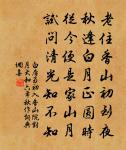 老住香山初到夜
秋逢白月正圆時
從今便是家山月
試問清光知不知
白居易初入香山院對
月大和六年秋作詞典
網書